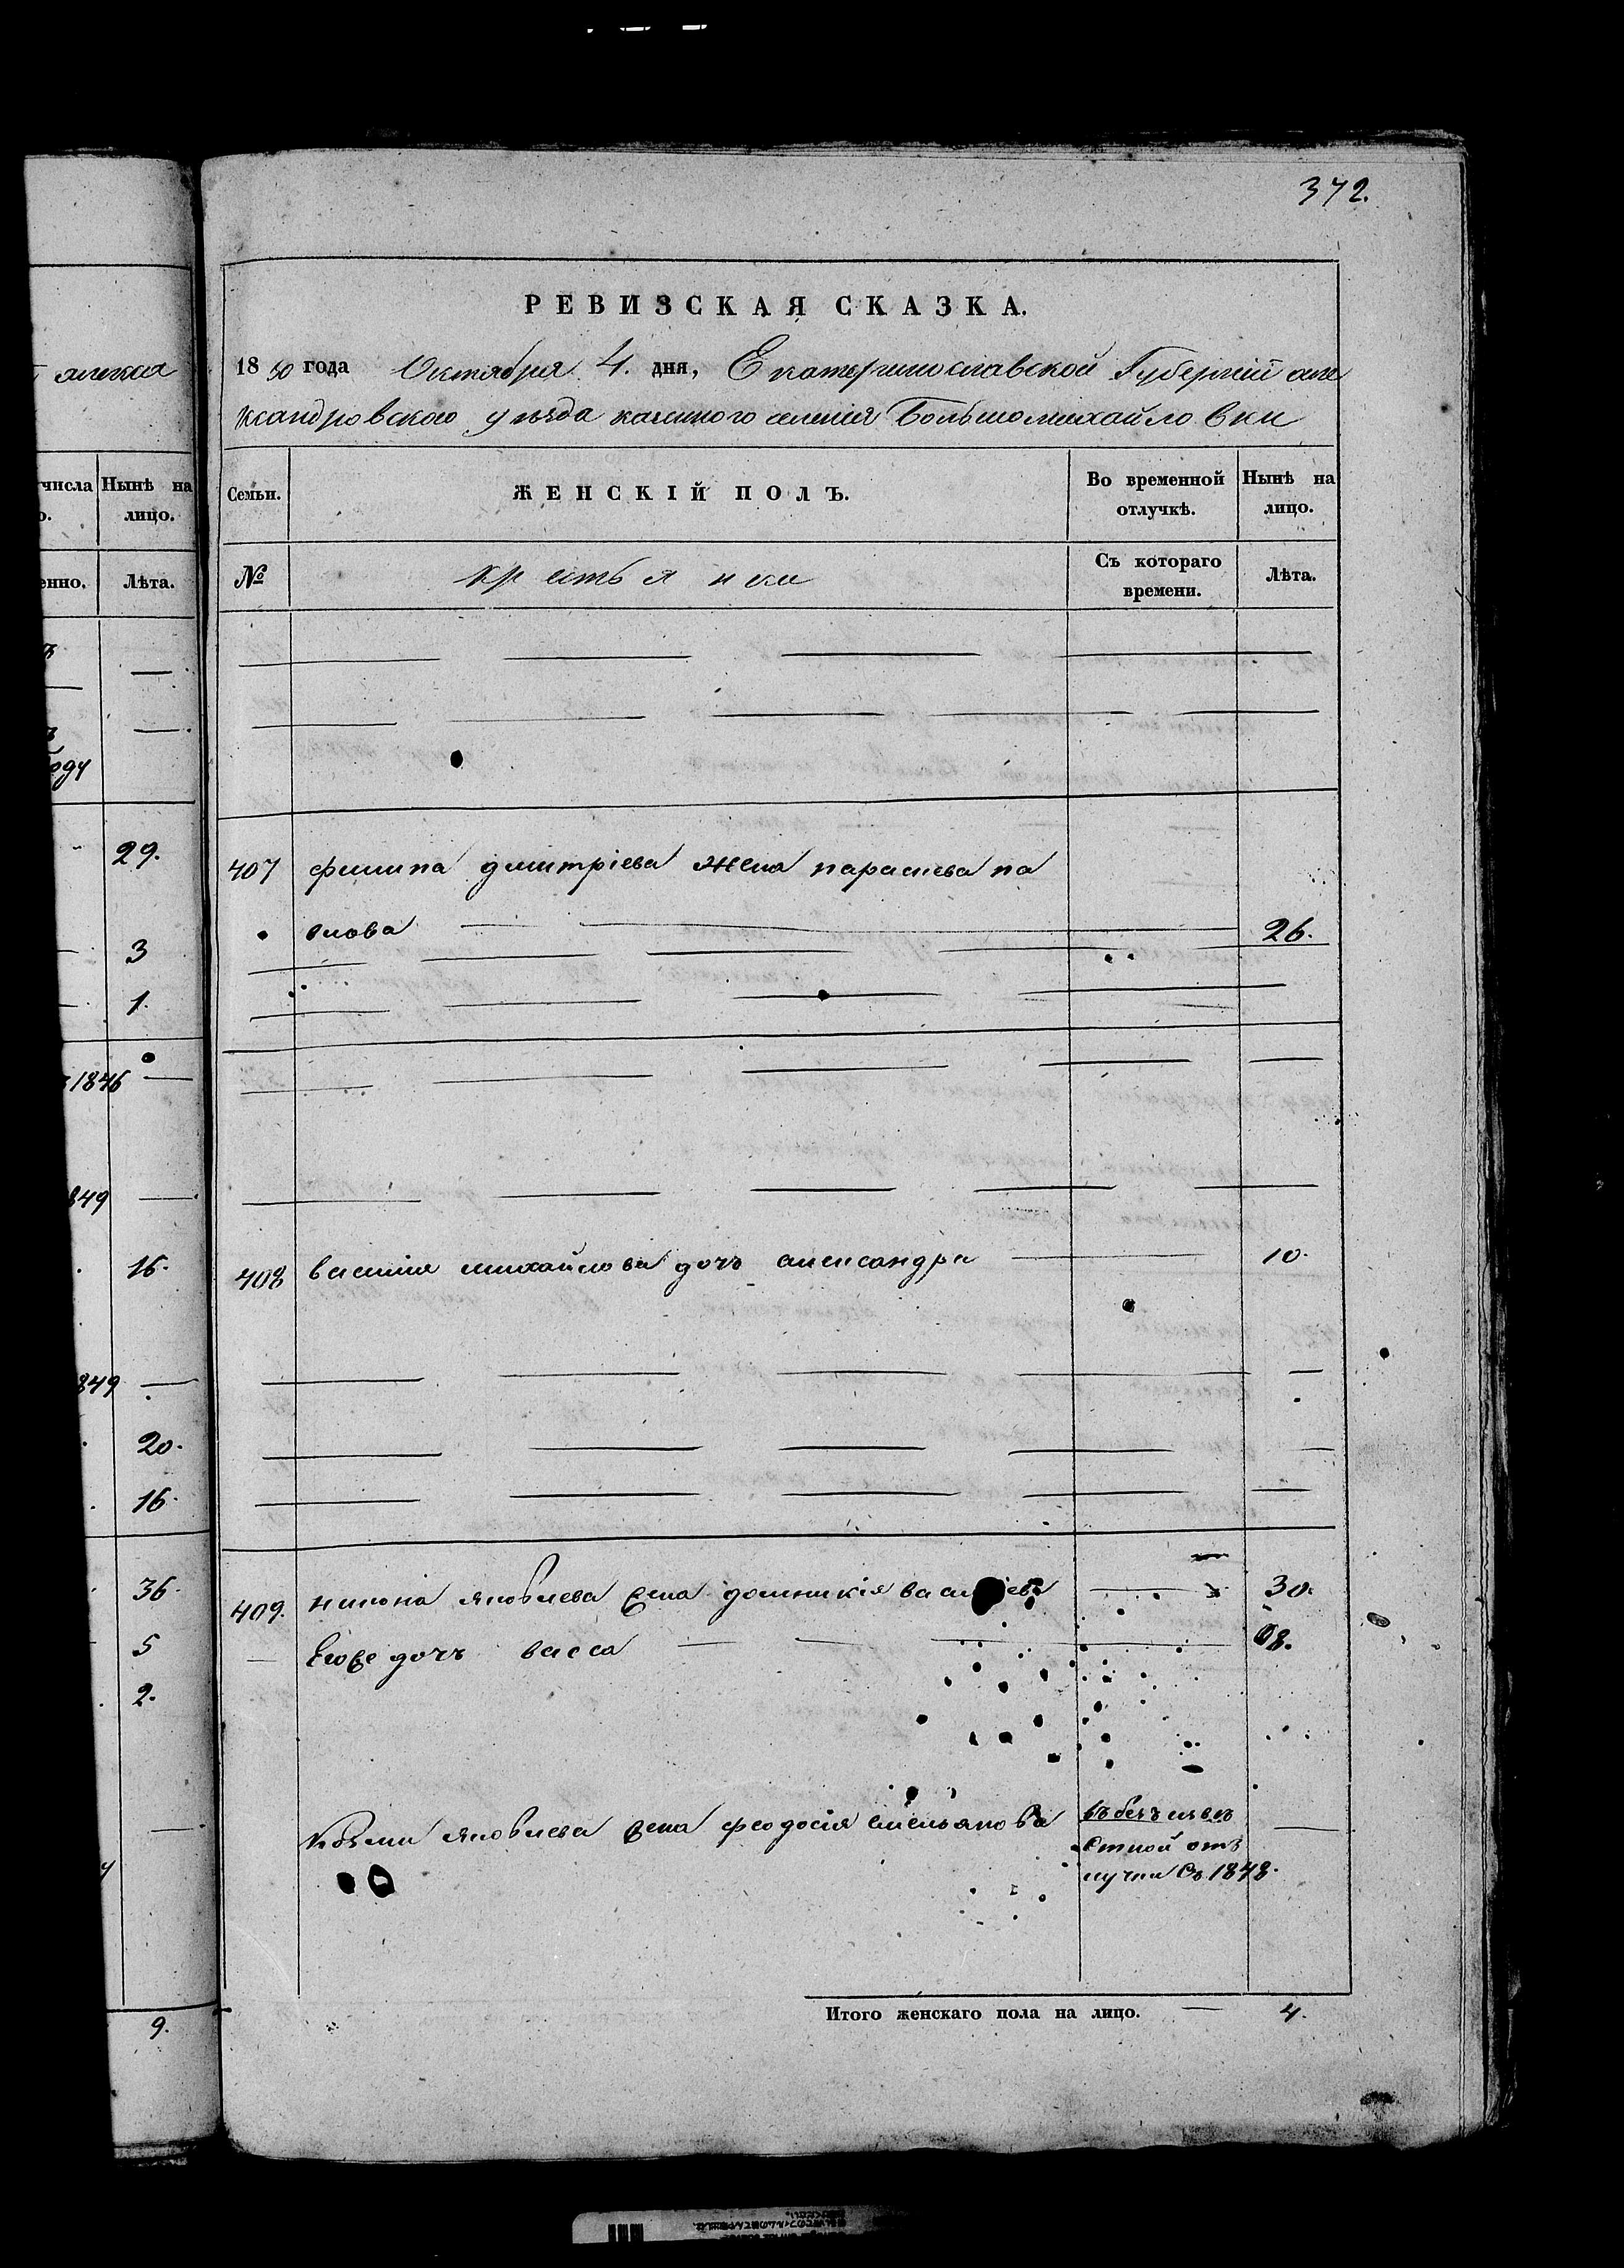 372.
РЕВИЗСКАЯ СКАЗКА.
1850 года Октября 4. дня, Екатеринославской Губерніи але
ксандровского уѣзда казенного селенія Большомихайловки
Семьи.
ЖЕНСКІЙ ПОЛЪ.
Во временной отлучкѣ.
Нынѣ на лицо.
№
крестьянки
Съ котораго времени.
Лѣта.
407 филипа дмитріева жена парасковія па
влова 26.
408 василия михайлова дочь александра 10.
409. никона яковлева жена домникія васильева 30.
Егоже дочь васса 8.
яковлева жена феодосія емельянова въ безъизвѣ
стной от
лучки съ 1848.
Итого женскаго пола на лицо. 4.
алекса
числа
Нынѣ на
лицо.
енно.
Лѣта.
оду
29.
3
1.
1846
849
16.
849
20.
16.
36.
5
2.
9.